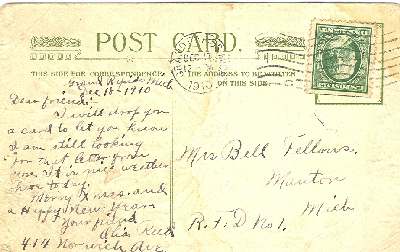 POST CARD.
THIS SIDE FOR CORRESPONDENCE
THE ADDRESS TO BE WRITTEN
ON THIS SIDE.
DEC
1910
Grand Rapids Mich
Dec 18-1910
Dear friend:
I will drop you
a card to let you know
I am still looking
for that letter from
you. It is nice weather
here today.
Merry Xmas and
a Happy New Year
Your friend
Reed
414 Norwich Ave.
Mrs Bell Fellows.
Manton
Mich
R.F.D No 1.